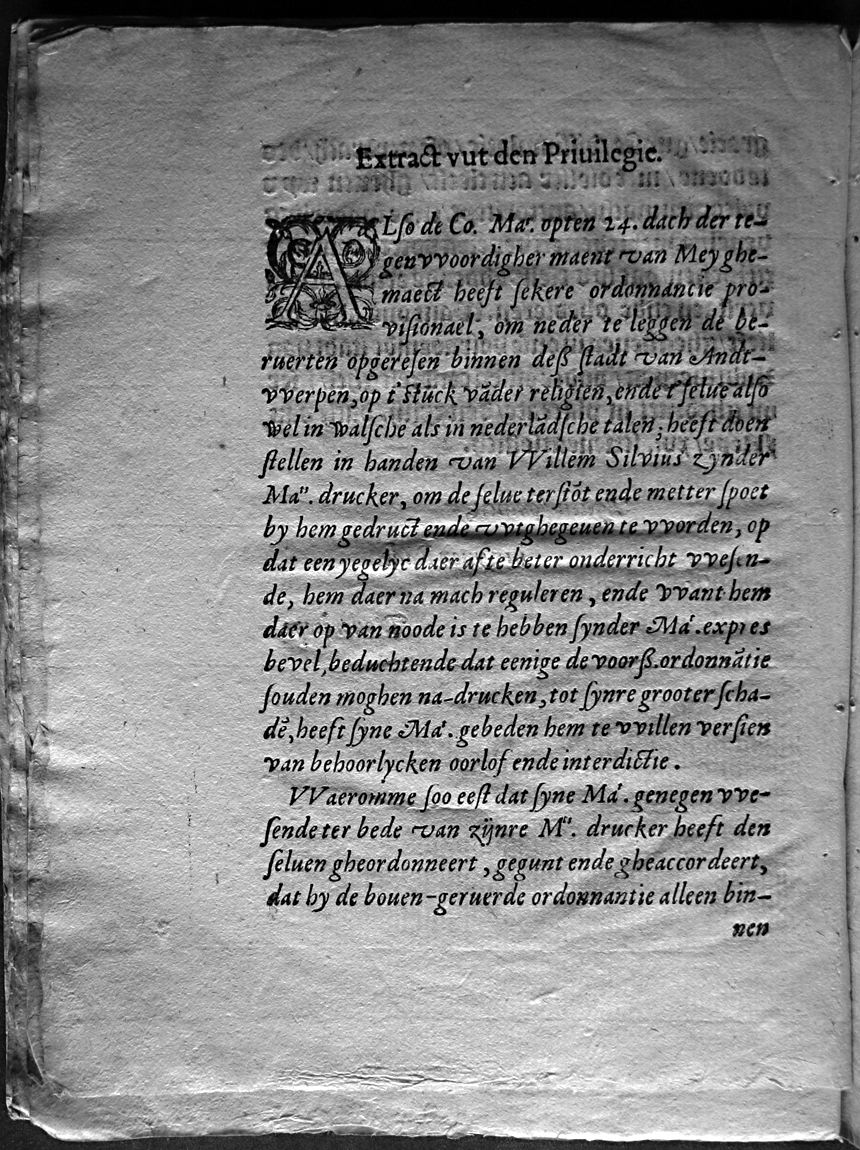 Extract vut den Priuilegie.
ALſo de Co. Maᵗ. opten 24. dach der te-
genvvoordigher maent van Mey ghe-
maect heeft ſekere ordonnancie pro-
viſionael, om neder te leggen de be-
ruerten opgereſen binnen deß ſtadt van Andt-
vverpen, op t'ſtuck vāder religien, ende t'ſelue alſo
wel in walſche als in nederlādſche talen, heeft doen
ſtellen in handen van VVillem Silvius zynder
Maᵗˢ. drucker, om de ſelue terſtōt ende metter ſpoet
by hem gedruct ende vvtghegeuen te vvorden, op
dat een yegelyc daer af te beter onderricht vveſen-
de, hem daer na mach reguleren, ende vvant hem
daer op van noode is te hebben ſynder Maᵗ. expres
bevel, beduchtende dat eenige de voorß. ordonnātie
ſouden moghen na-drucken, tot ſynre grooter ſcha-
dē, heeft ſyne Maᵗ. gebeden hem te vvillen verſien
van behoorlycken oorlof ende interdictie.
VVaeromme ſoo eeſt dat ſyne Maᵗ. genegen vve-
ſende ter bede van zijnre Mᵗˢ. drucker heeft den
ſeluen gheordonneert, gegunt ende gheaccordeert,
dat hy de bouen-geruerde ordonnantie alleen bin-
nen